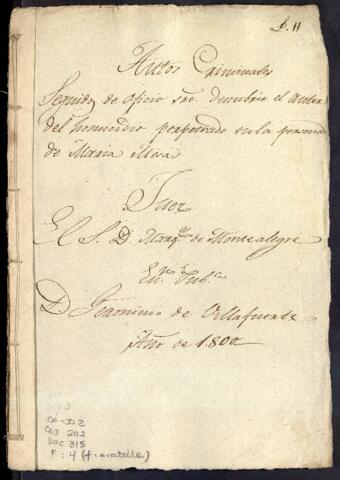 L. 11
Autos Criminales
Seguidos de oficio sre. descubrir el Autor
del homicidio perpetrado en la persona
de Maria Mesa
Juez
El S. D. Marqs. de Montealegre
En.no Pub.co
D. Geronimo de Villafuerte
Año de 1800
CA-JO2
CAJ 202
DOC 315
F: 4 (+ caratula)